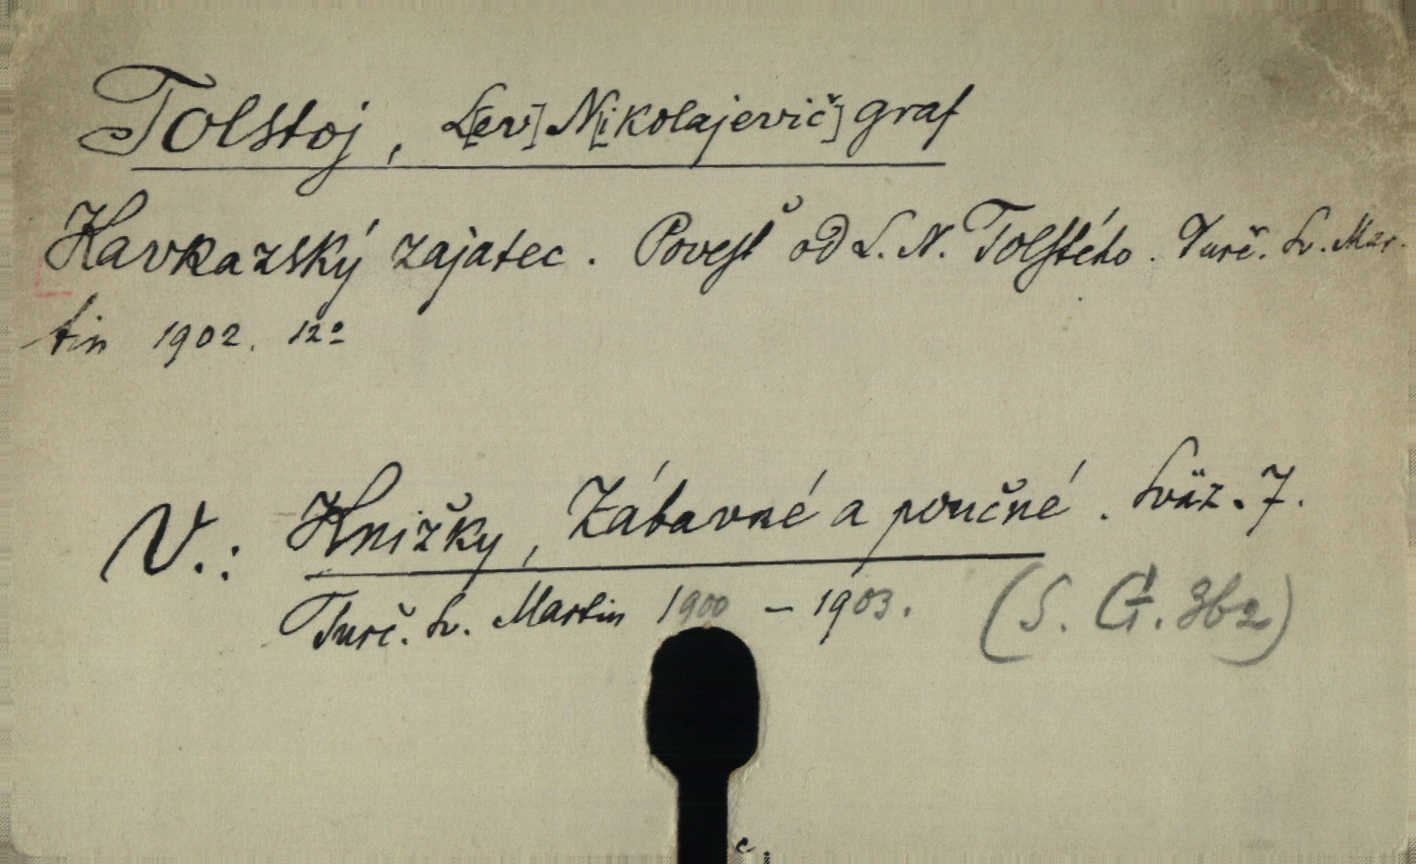 Tolstoj, L[ev] N[ikolajevič] graf
Kavkazský zajatec. Povesť od L. N. Tolstého. Turč. Sv. Mar-
tin 1902. 12º
V.: Knižky, Zábavné a poučné. Sväz. 7.
Turč. Sv. Martin 1900 – 1903. (S. G. 362)